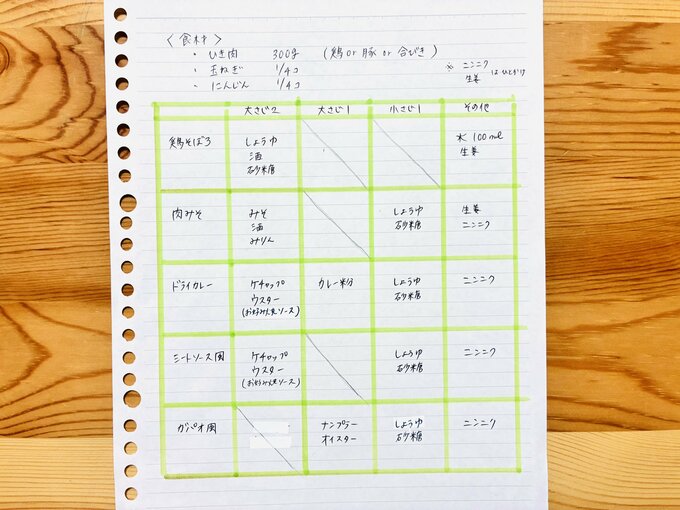 〈 食材 〉
・ ひき肉 300g ( 鶏 or 豚 or 合びき )
・ 玉ねぎ 1/4コ
・ にんじん 1/4コ
※ ニンニク 生姜 はひとかけ
大さじ2 大さじ1 小さじ1 その他
鶏そぼろ
しょうゆ
酒
砂糖
水 100ml
生姜
肉みそ
みそ
酒
みりん
しょうゆ
砂糖
生姜
ニンニク
ドライカレー
ケチャップ
ウスター
(お好み焼ソース)
カレー粉
しょうゆ
砂糖
ニンニク
ミートソース風
ケチャップ
ウスター
(お好み焼ソース)
しょうゆ
砂糖
ニンニク
ガパオ風
ナンプラー
オイスター
しょうゆ
砂糖
ニンニク